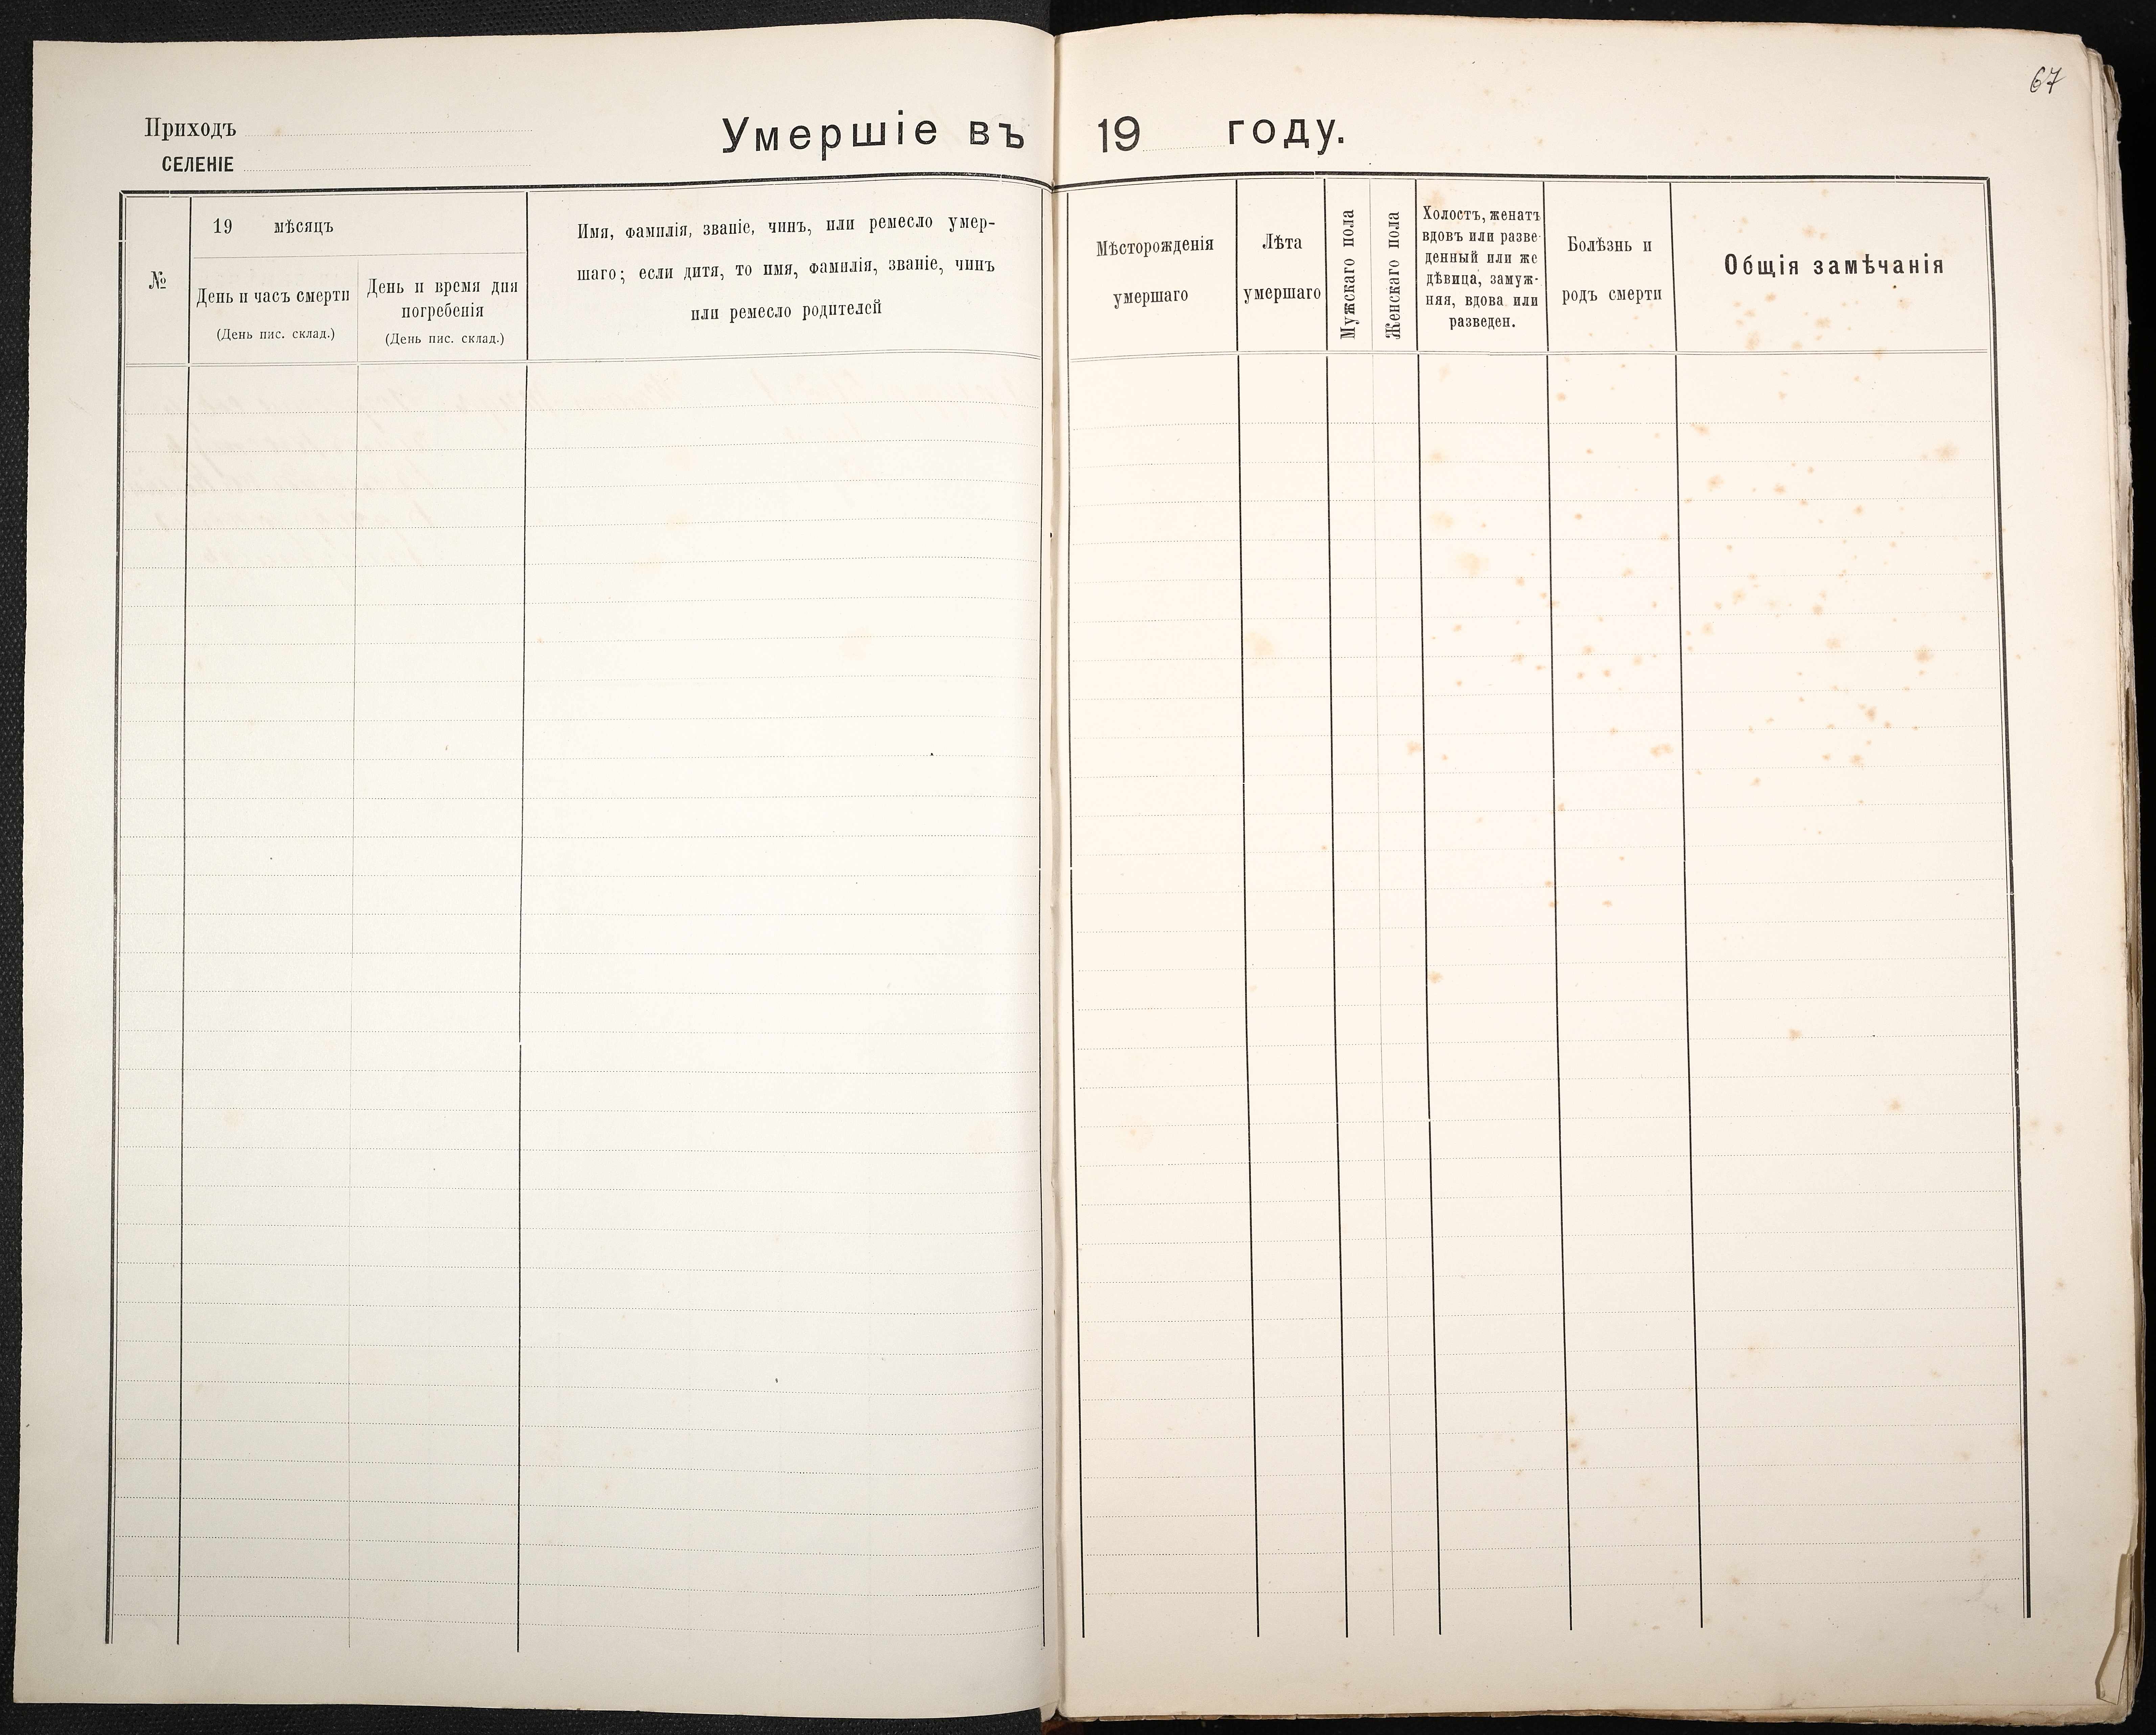 67
Приходъ
СЕЛЕНІЕ
Умершіе въ 19 году.
№
19 мѣсяцъ
День и часъ смерти
(День пис. склад.)
День и время дня
погребенія
(День пис. склад.)
Имя, фамилія, званіе, чинъ, или ремесло умер-
шаго; если дитя, то имя, фамилія, званіе, чинъ
или ремесло родителей
Мѣсторожденія
умершаго
Лѣта
умершаго
Мужскаго пола
Женскаго пола
Холостъ, женатъ
вдовъ или разве-
денный или же
дѣвица, замуж-
няя, вдова или
разведен.
Болѣзнь и
родъ смерти
Общія замѣчанія